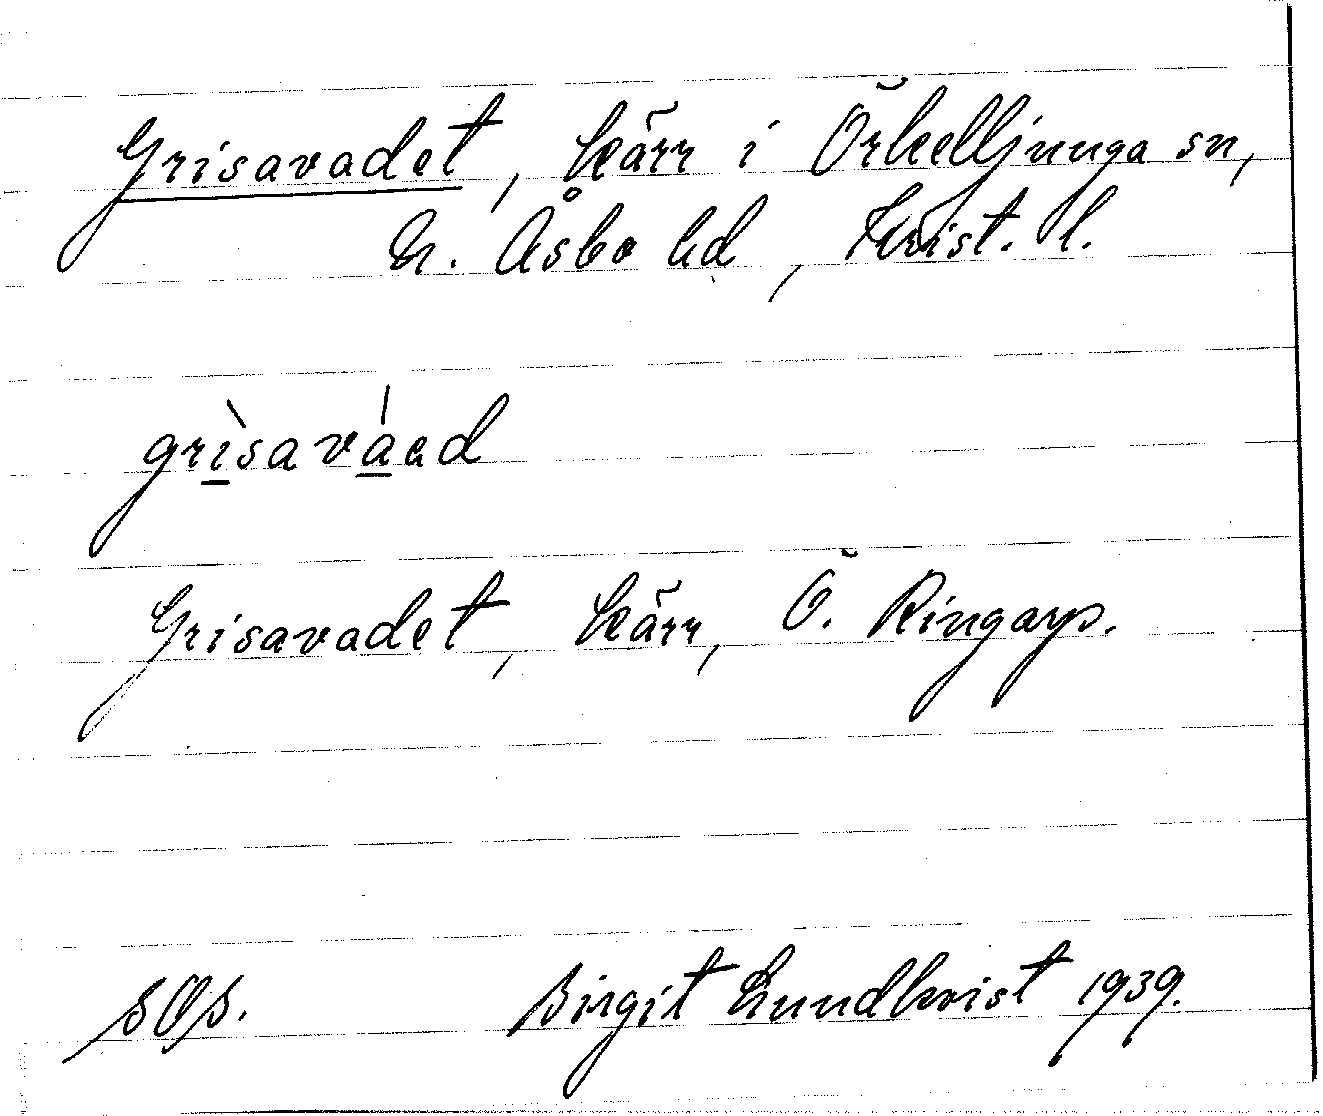 Grisavadet, kärr i Örkelljunga sn,
N. Åsbo hd, Krist. l.
grìsaváad
Grisavadet, kärr, Ö. Ringarp.
SOS. Birgit Lundkvist 1939.